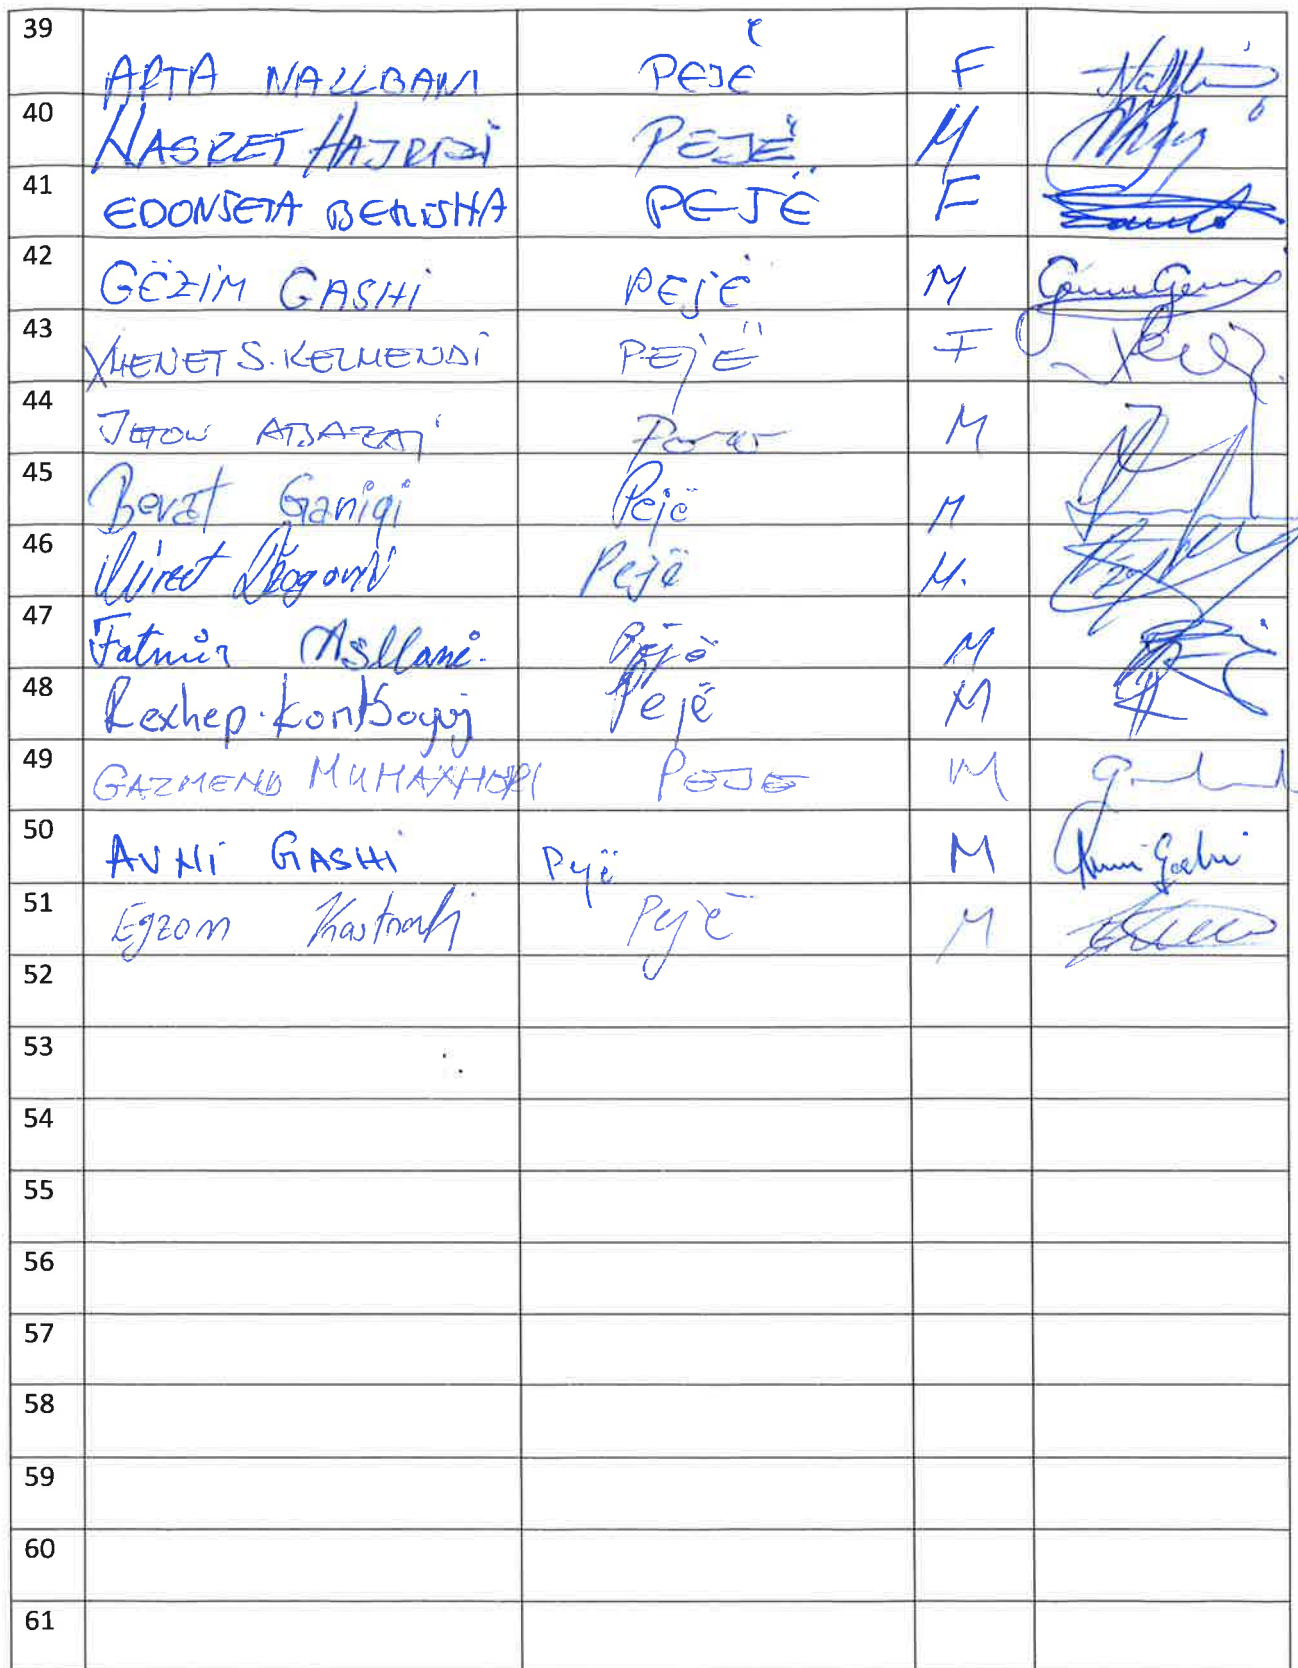 39 ARTA NALLBANI PEJË F
40 NASRET HAJRIZI PEJË M
41 EDONJETA BERISHA PEJË F
42 GËZIM GASHI PEJË M
43 XHENET S. KELMENDI PEJË F
44 JETON ABAZAJ M
45 Berat Ganiqi Pejë M
46 Pejë M.
47 Fatmir Asllani. Pejë M
48 Rexhep Pejë M
49 GAZMEND MUHAXHERI PEJE M
50 AVNI GASHI Pejë M Avni Gashi
51 Egzon Kastrati Pejë M
52
53
54
55
56
57
58
59
60
61